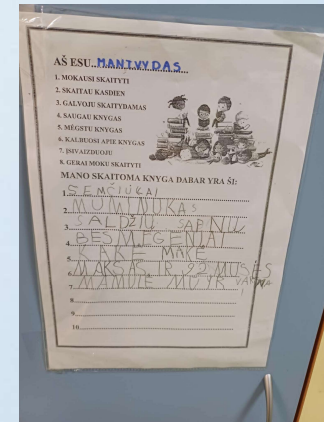 AŠ ESU..MANTVYDAS...
1. MOKAUSI SKAITYTI
2. SKAITAU KASDIEN
3. GALVOJU SKAITYDAMAS
4. SAUGAU KNYGAS
5. MĖGSTU KNYGAS
6. KALBUOSI APIE KNYGAS
7. ĮSIVAIZDUOJU
8. GERAI MOKU SKAITYTI
MANO SKAITOMA KNYGA DABAR YRA ŠI:
1. SEMČIUKAI
2. MUMINUKAS
3. SALDŽIŲ SAPNŲ
4. BESMEGENIAI
5. KAKĖ MAKĖ
6. MAKSAS IR 92 MUSĖS
7. MAMULĖ MŪ IR VARNA
8.
9.
10.